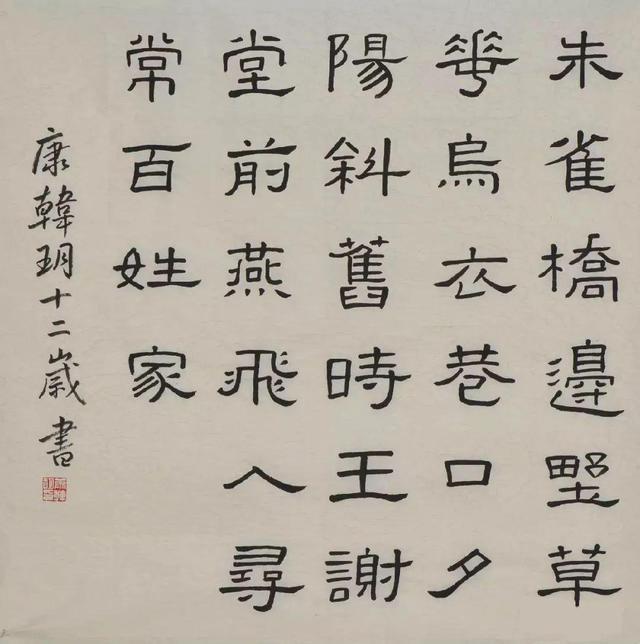 朱雀橋邊野草
花烏衣巷口夕
陽斜舊時王謝
堂前燕飛入尋
常百姓家
康韓玥十二歲書